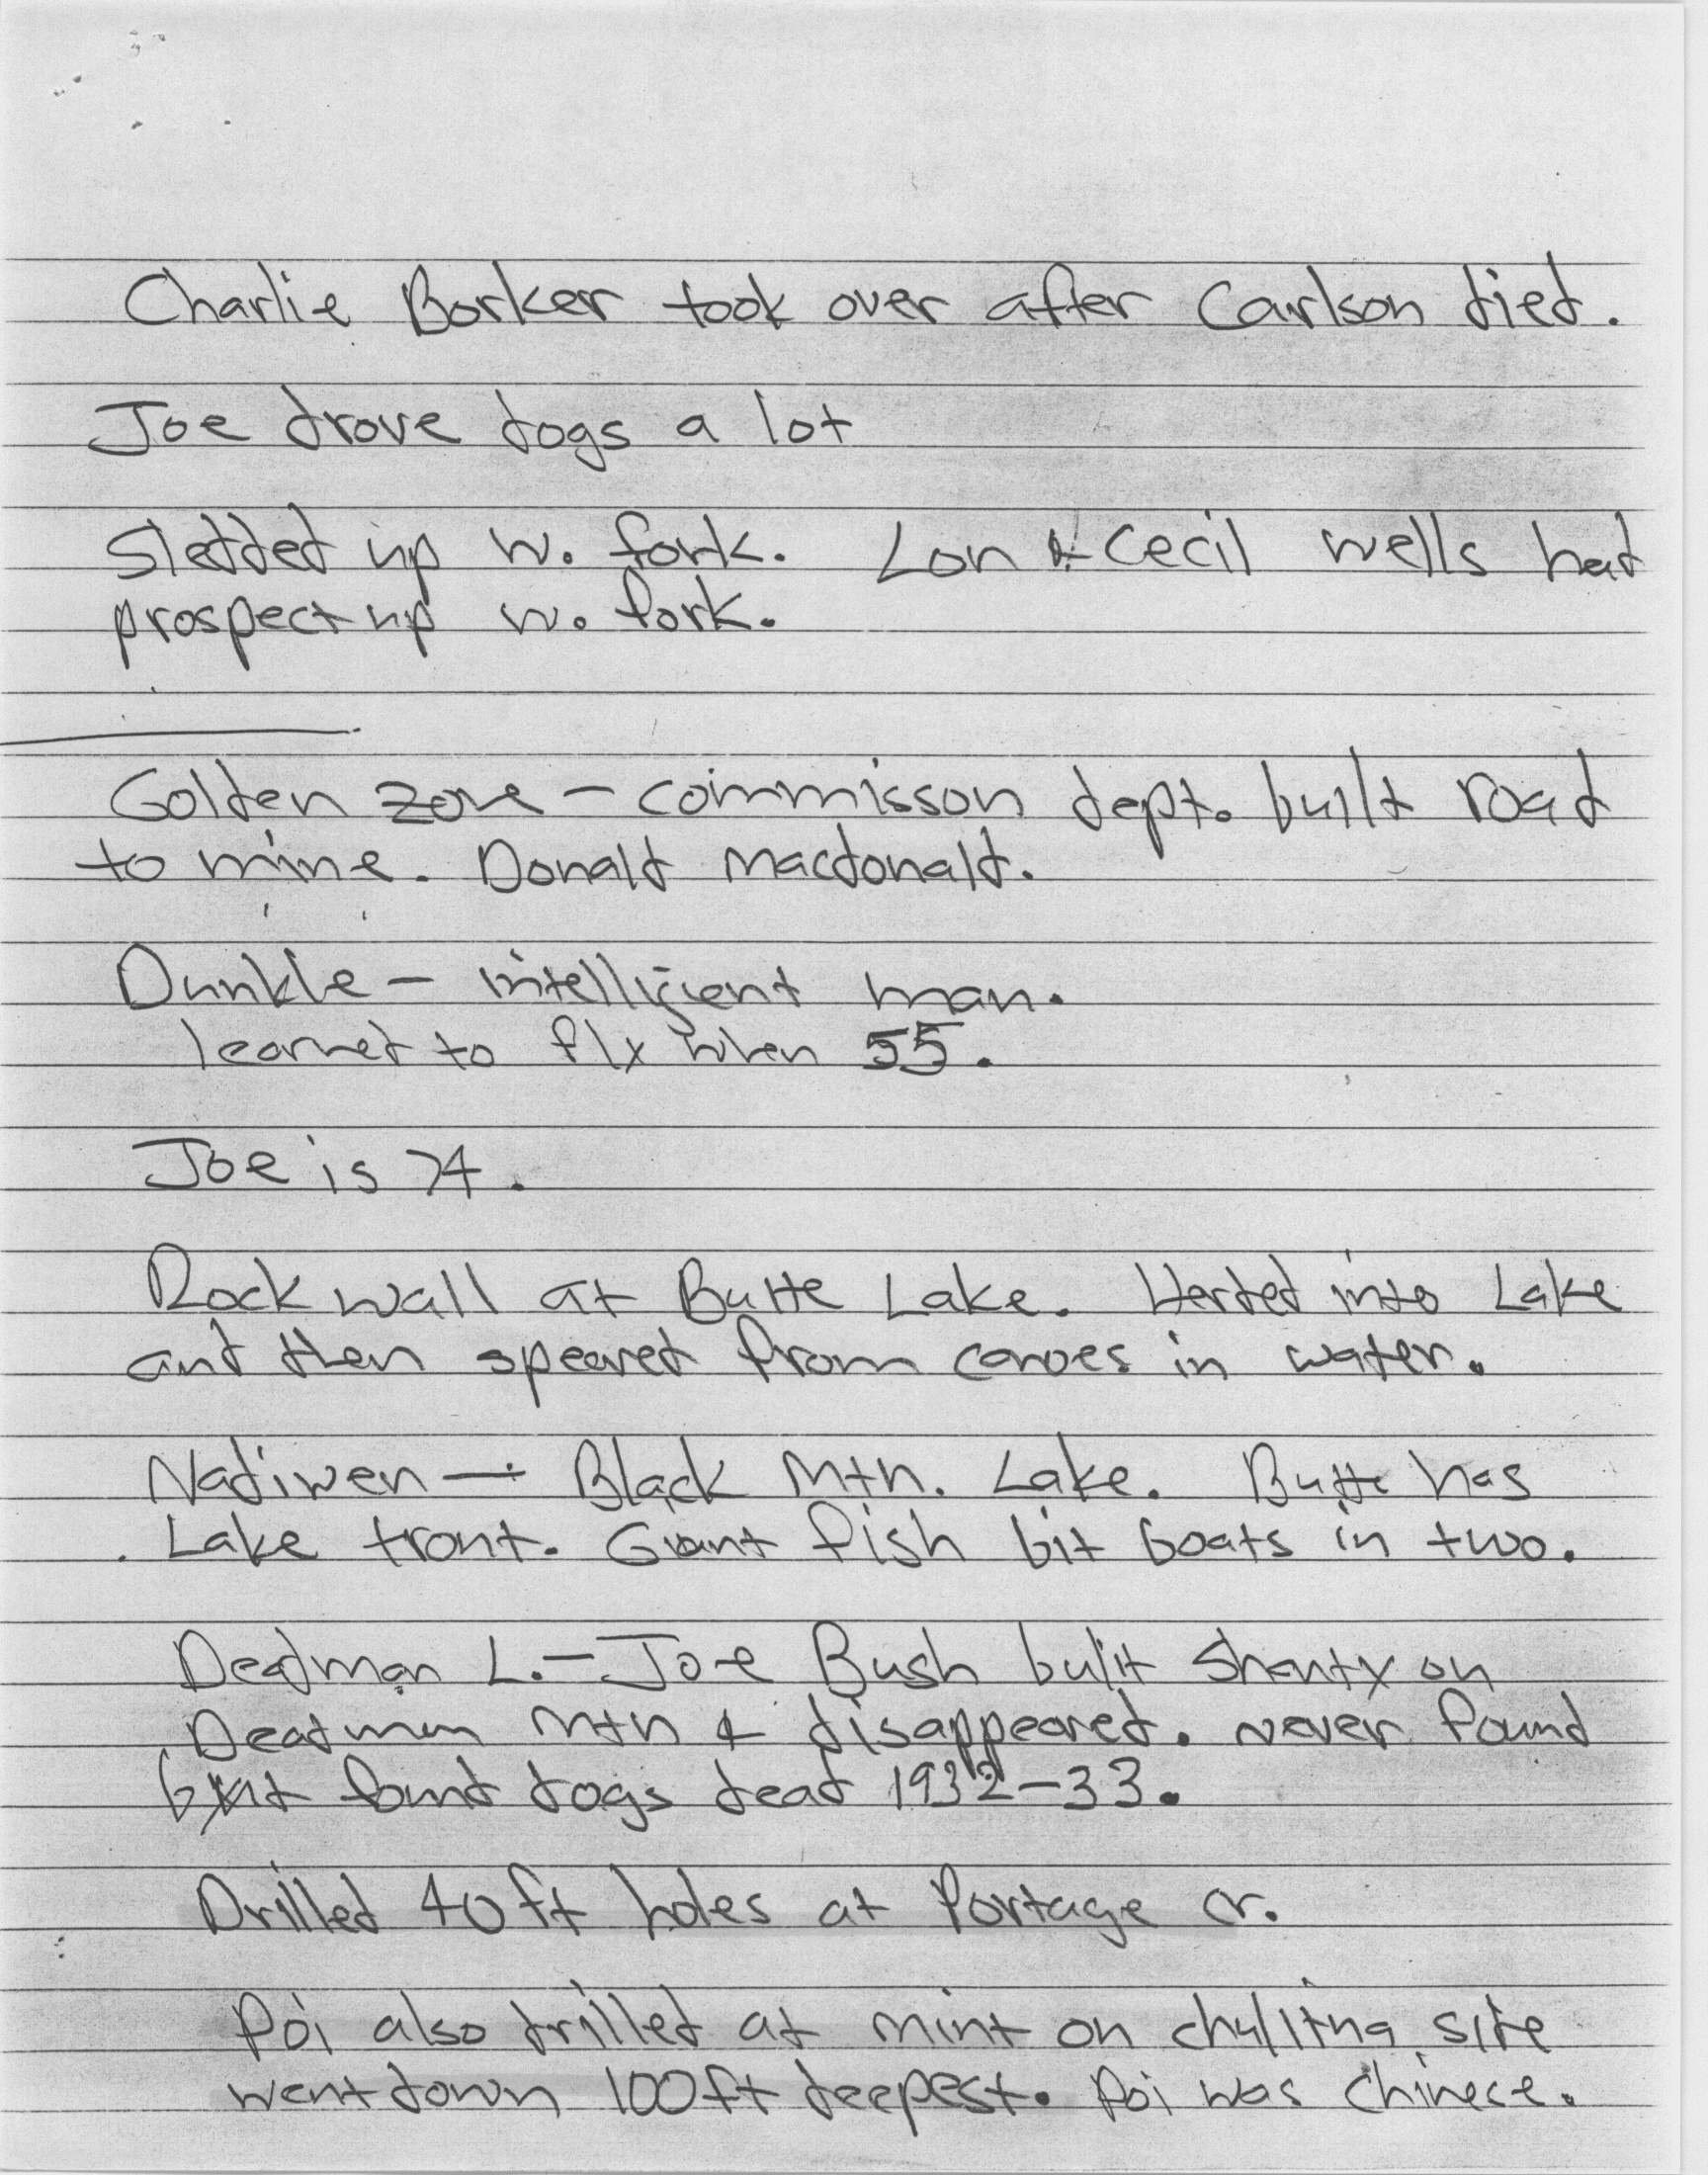 Charlie Borker took over after Carlson died.
Joe drove dogs a lot
Sledded up w. fork. Lon & Cecil wells had
prospect up w. fork.
Golden zone - commisson dept. built road
to mine. Donald Macdonald.
Dunkle - intelligient man.
learned to fly when 55.
Joe is 74.
Rock wall at Butte Lake. Herded into Lake
and then speared from canoes in water.
Nadiwen - Black Mtn. Lake. Butte has
Lake trout. Giant fish bit boats in two.
Deadman L. - Joe Bush built shanty on
Deadman Mtn & disappeared. never found
but found dogs dead 1932-33.
Drilled 40 ft holes at Portage cr.
Poi also drilled at mint on chulitna site
went down 100 ft deepest. Poi was Chinese.